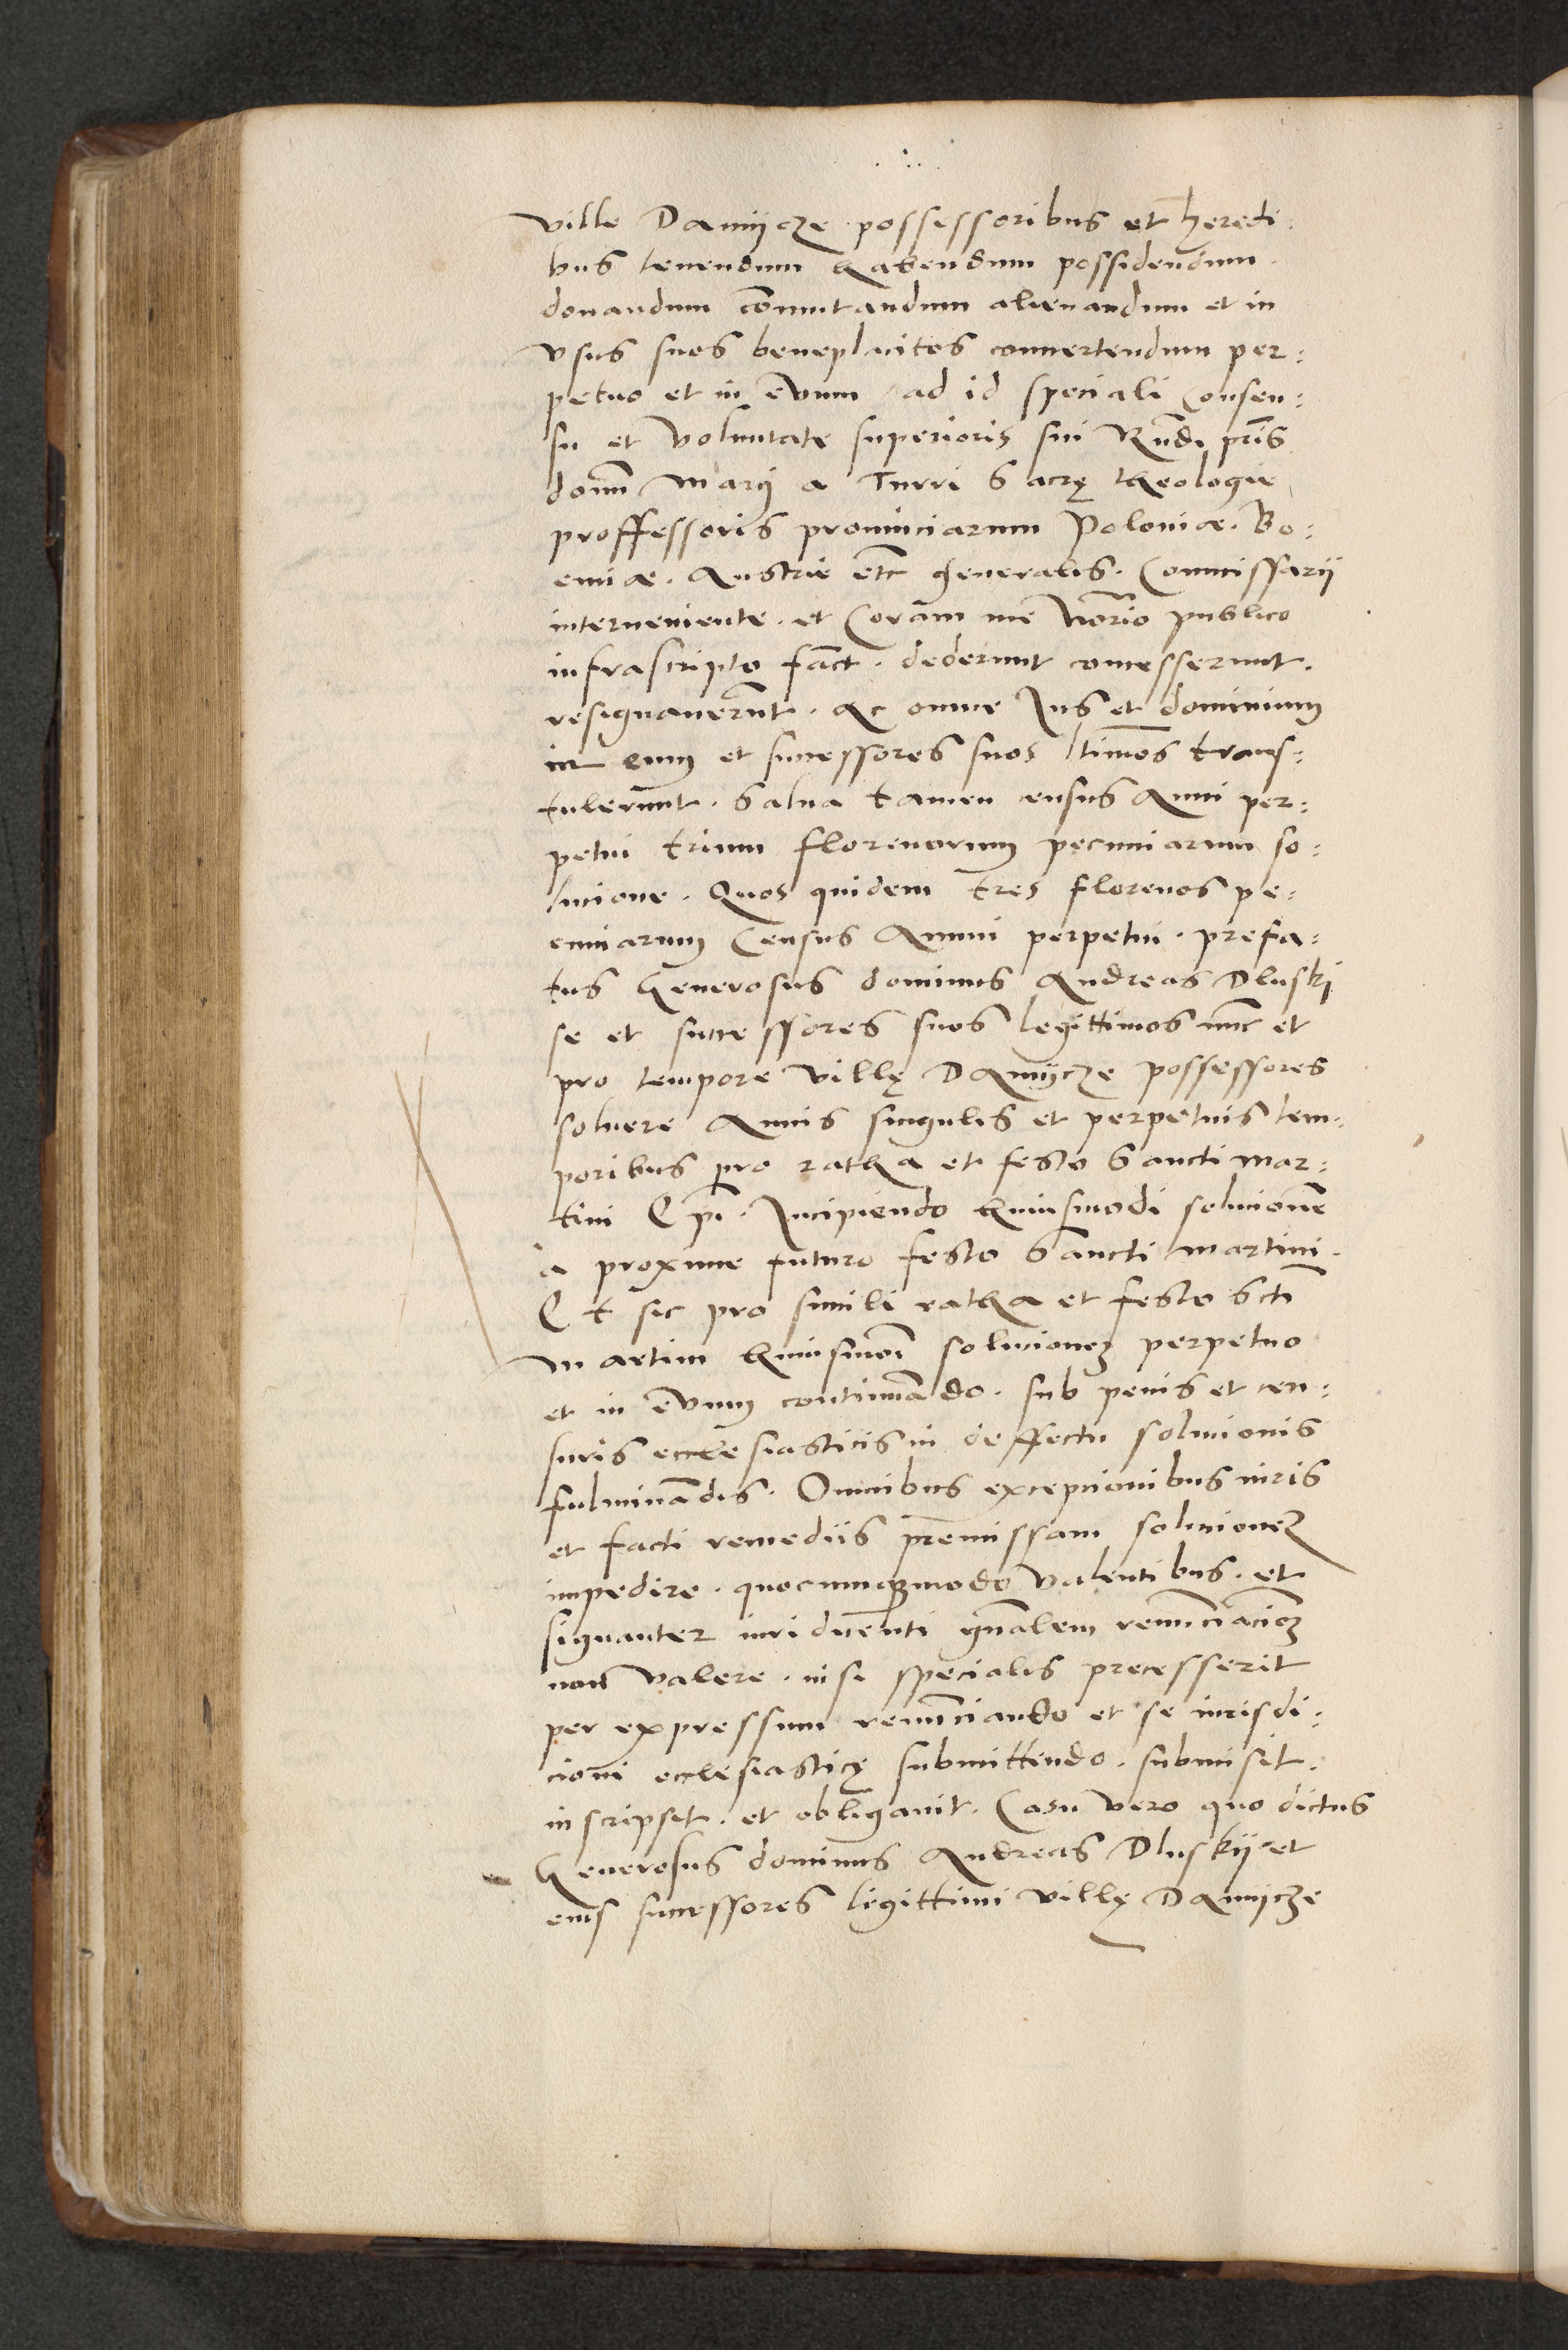 ville Damijcze possessoribus et heredi:
bus tenendum habendum possidendum
donandum cōmutandum alienandum et in
vsus suos beneplacitos conuertendum per:
petuo et in ēuum ad id speciali consen:
su et voluntate superioris sui Rūdi pr̄is
domī Marcj a Turri Sacrę theologie
proffessoris prouinciarum Poloniæ. Bo:
emiæ. Austrie etc̄ generalis. Commissarij
interueniente. et coram me Nōrio publico
infrascripto fact̄. dederunt concesserunt.
resignauerūnt. ac omne Jus et dominium
in eum et successores suos ltīmos trans:
tulerunt. Salua tamen census Anni per:
petui trium florenorum pecuniarum so:
lucione. Quos quidem tres florenos pe:
cuniarum Census Annui perpetui. prefa:
tus Generosus dominus Andreas Dluskj
se et successores suos legittimos nunc et
pro tempore villę Damijcze possessores
soluere Annis singulis et perpetuis tem:
poribus pro ratha et festo Sancti Mar:
tini Epī. Incipiendo huiusmodi solucionē
à proxime futuro festo Sancti Martini.
Et sic pro simili ratha et festo Sctī
Martini huiusmōi solucionem perpetuo
et in ēuum continuādo. sub penis et cen:
suris ecclesiasticis in deffectu solucionis
fulminādis. Omnibus excepcionibus iuris
et facti remedijs premissam solucionem
impedire. quocunqzmodo valentibus. et
signanter iuri dicenti gn̄alem renunciacioēm
non valere. nisi specialis precesserit
per expressum renunciando et se iurisdi:
cioni ecclesiasticę submittendo. submisit.
inscripsit. et obligauit. Casu vero quo dictus
Generosus dominus Andreas Dluskij et
eius successores legittimi villę Damijcze